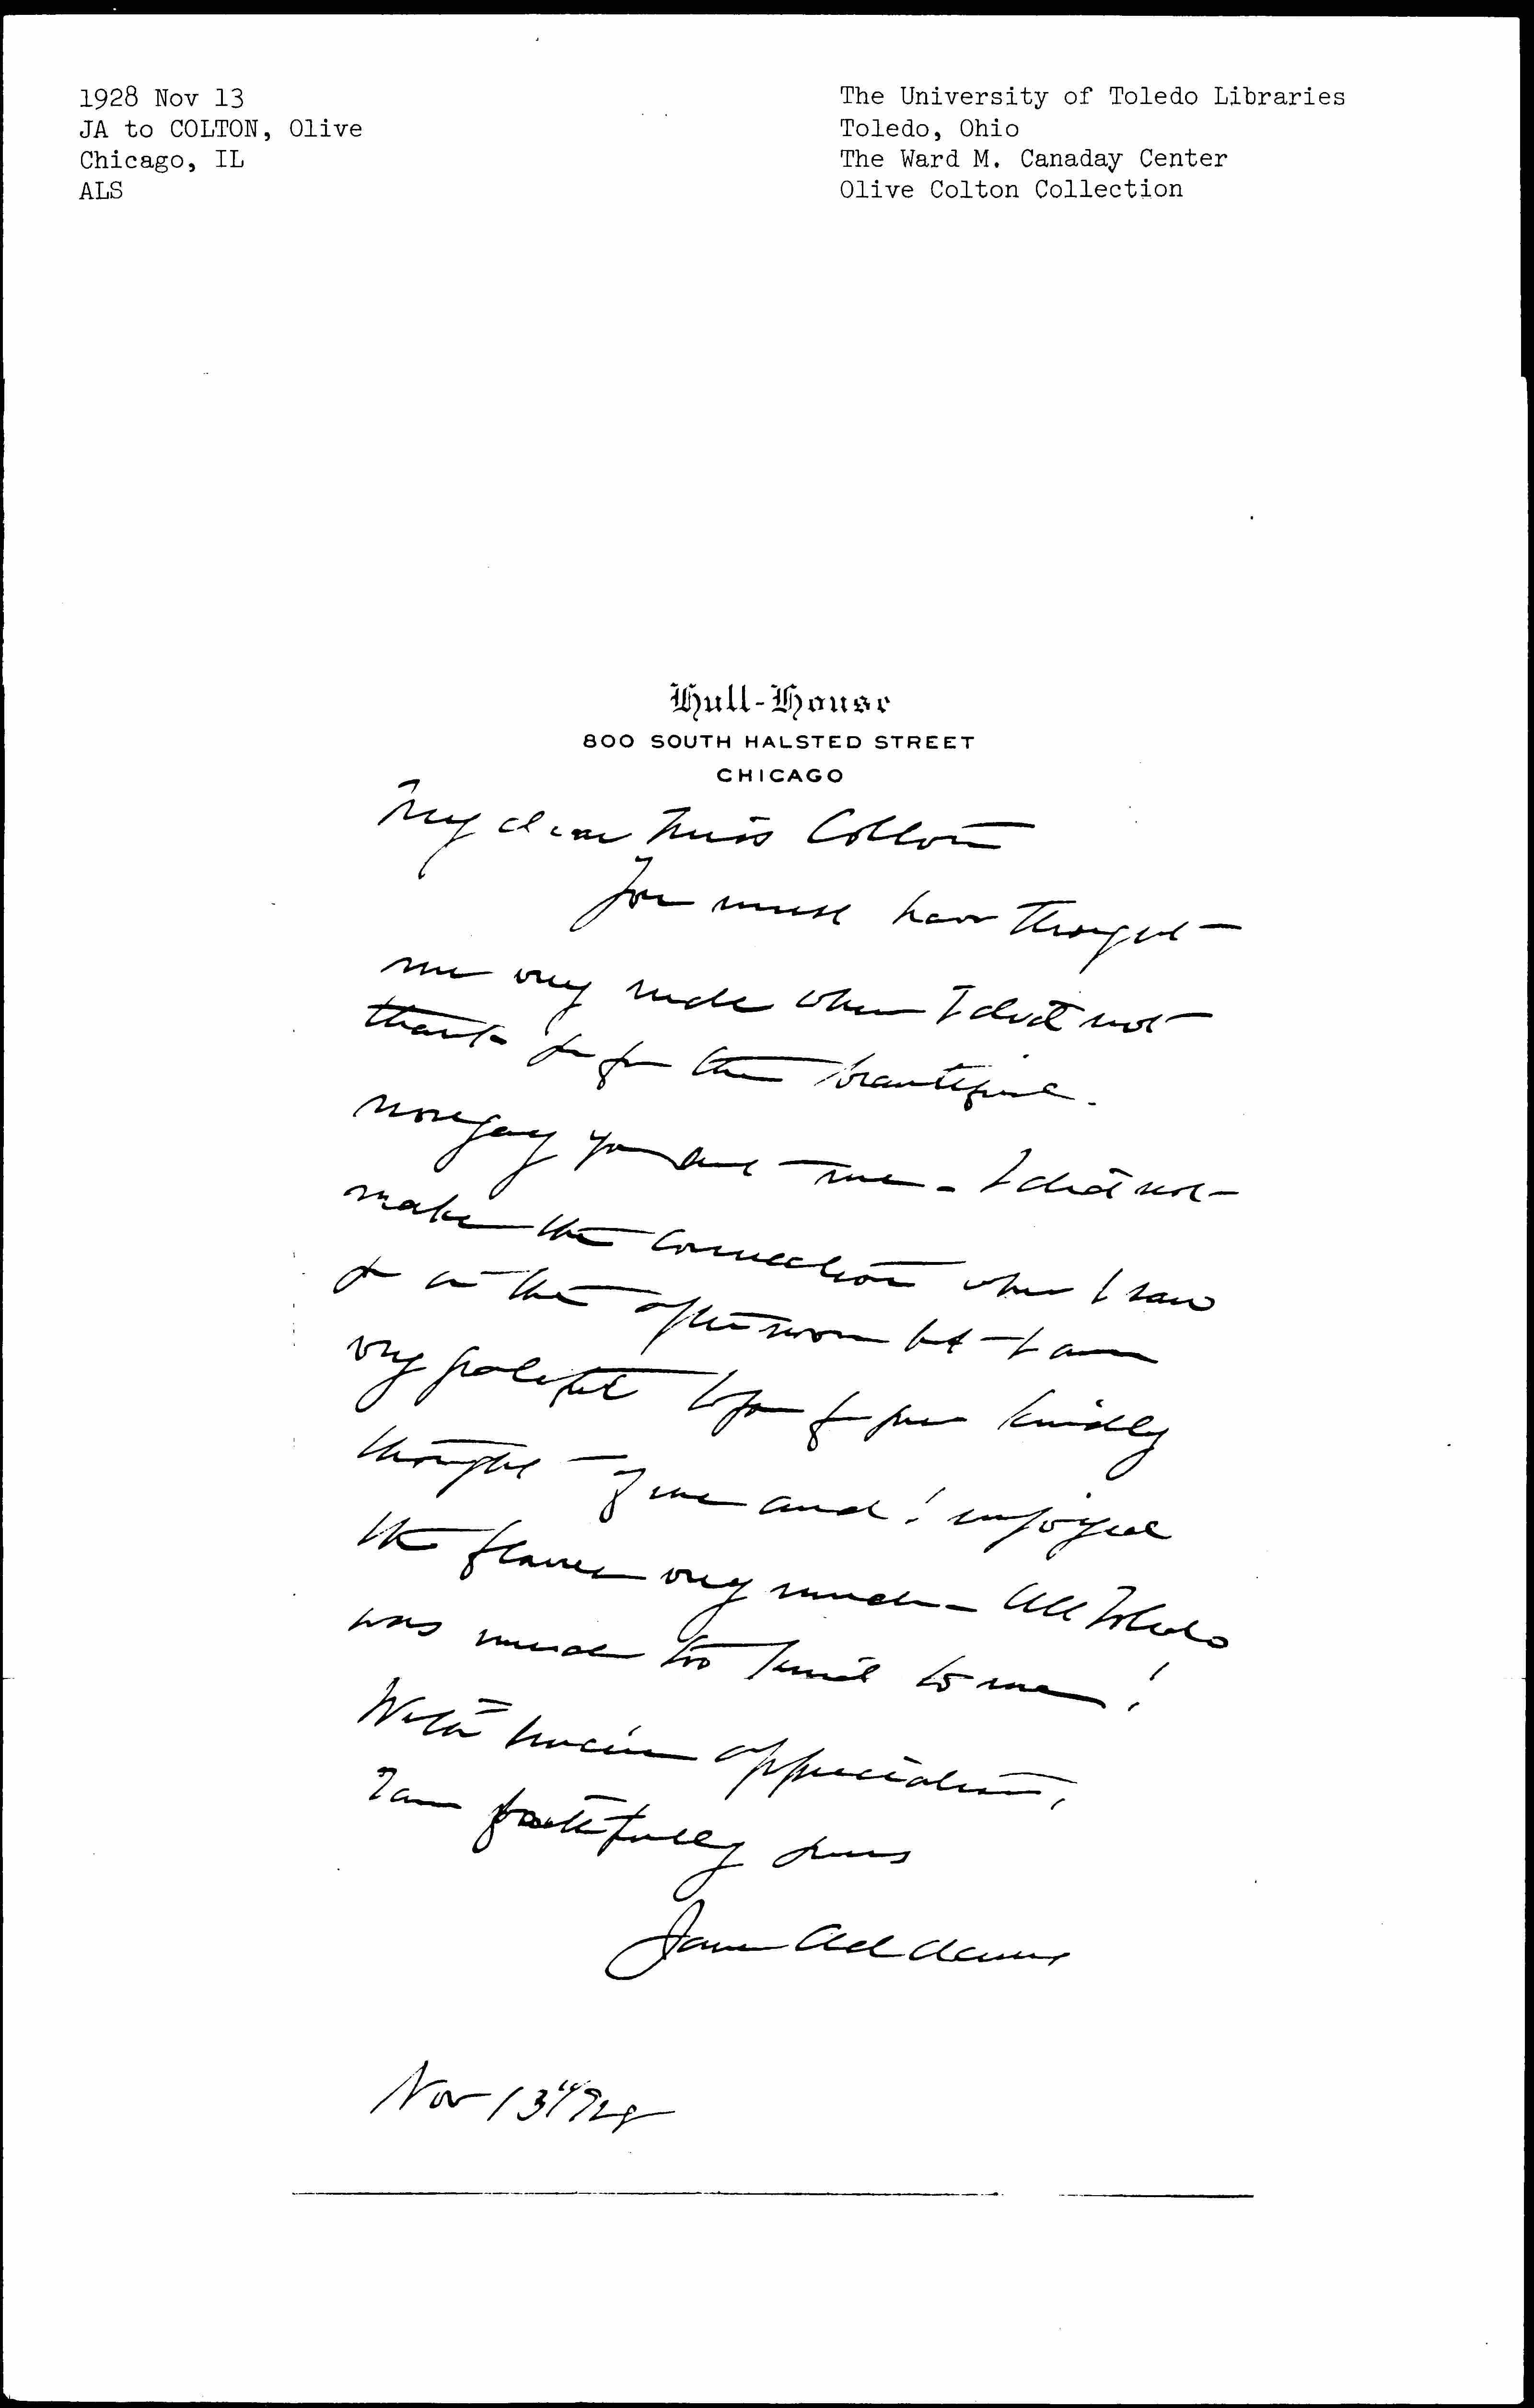 1928 Nov 13
JA to COLTON, Olive
Chicago, IL
ALS
The University of Toledo Libraries
Toledo, Ohio
The Ward M. Canaday Center
Olive Colton Collection
Hull-House
800 SOUTH HALSTED STREET
CHICAGO
My dear Miss Colton
You must have thought
me very rude when I did not
thank you for the beautiful
nosegay you sent me - I did not
make the connection when I saw
you in the afternoon but I am
very grateful to you for your kindly
thought of me and I enjoyed
the flowers very much - All Toledo
was much too kind to me!
With sincere appreciation,
I am faithfully yours
Jane Addams
Nov 13" 1928